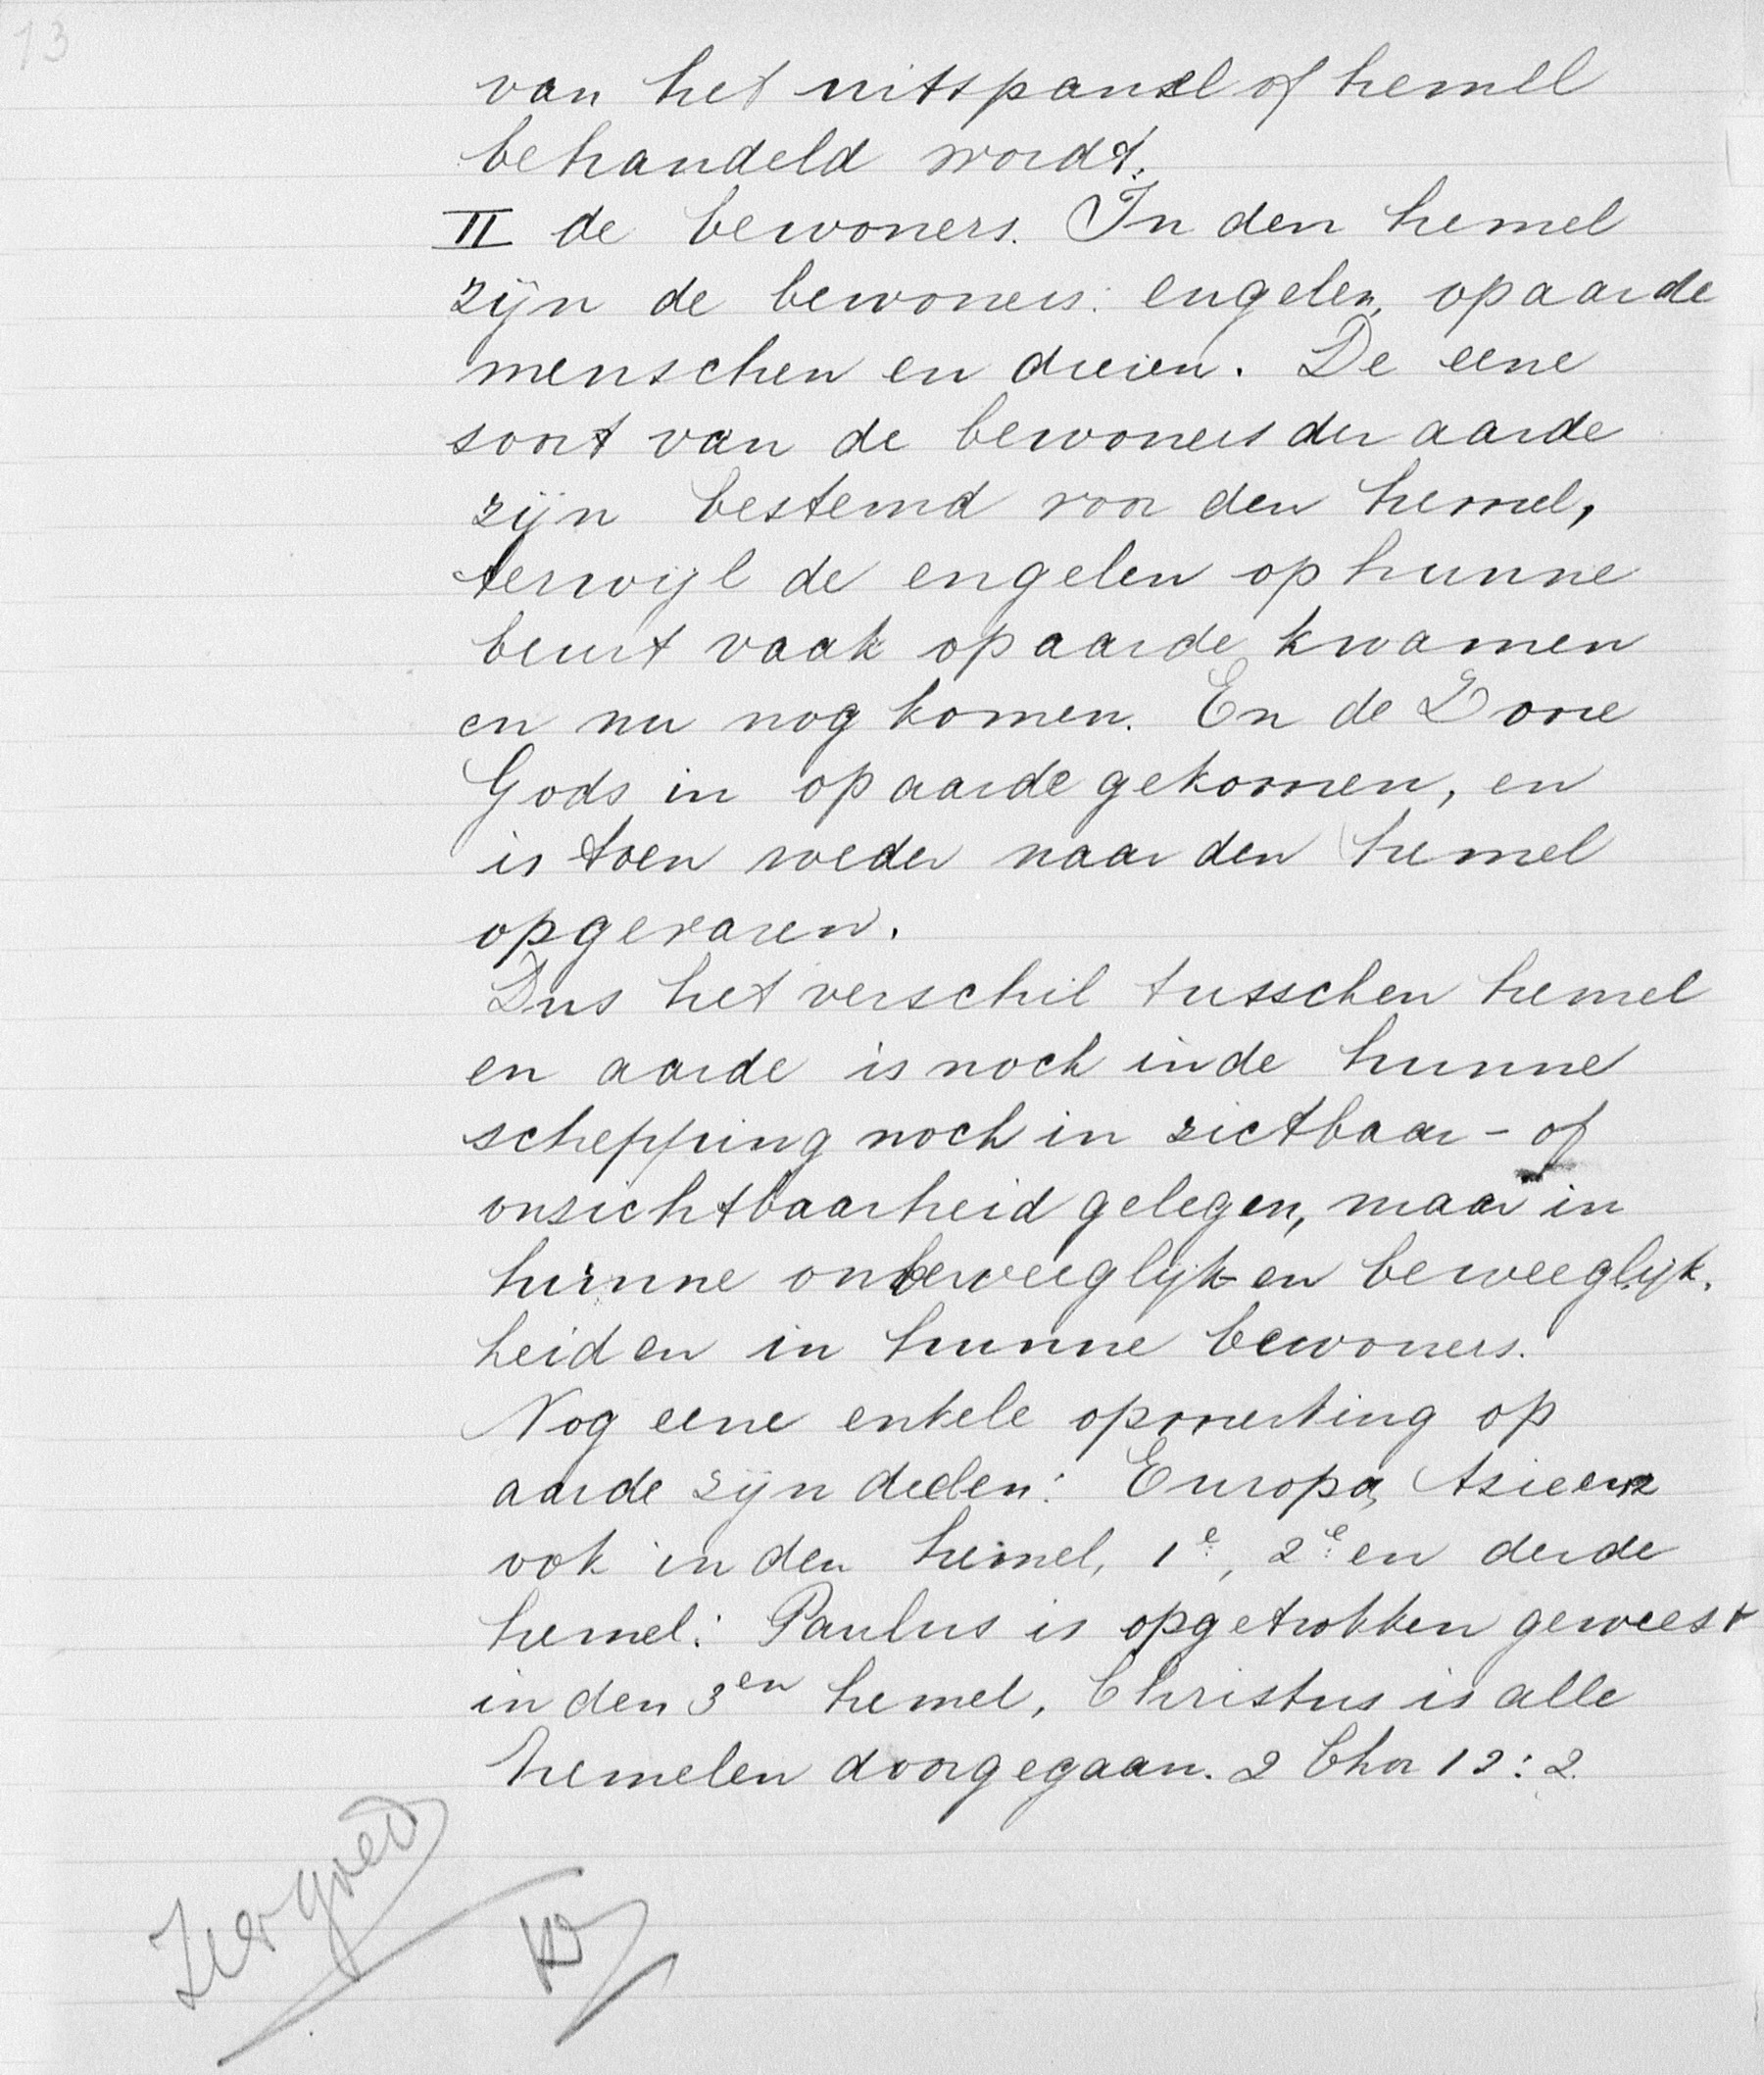 13
van het uitspansel of hemel
behandeld wordt.
II de bewoners. In den hemel
zijn de bewoners: engelen, op aarde
menschen en dieren. De eene
soort van de bewoners der aarde
zijn bestemd voor den hemel,
terwijl de engelen op hunne
beurt vaak op aarde kwamen
en nu nog komen. En de Zone
Gods in op aarde gekomen, en
is toen weder naar den hemel
opgevaren.
Dus het verschil tusschen hemel
en aarde is noch in de hunne
schepping noch in zictbaar- of
onzichtbaarheid gelegen, maar in
hunne onbeweeglijk- en beweeglijk-
heid en in hunne bewoners.
Nog eene enkele opmerking op
aarde zijn deelen: Europa, Asie enz
ook in den hemel, 1e, 2e en derde
hemel: Paulus is opgetrokken geweest
in den 3en hemel, Christus is alle
hemelen doorgegaan. 2 Chor 12:2.
Zeer goed